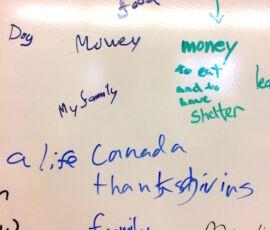 food
Dog
Money
money
to eat
and to
have
shelter
My family
a life Canada
thanksgiving
family